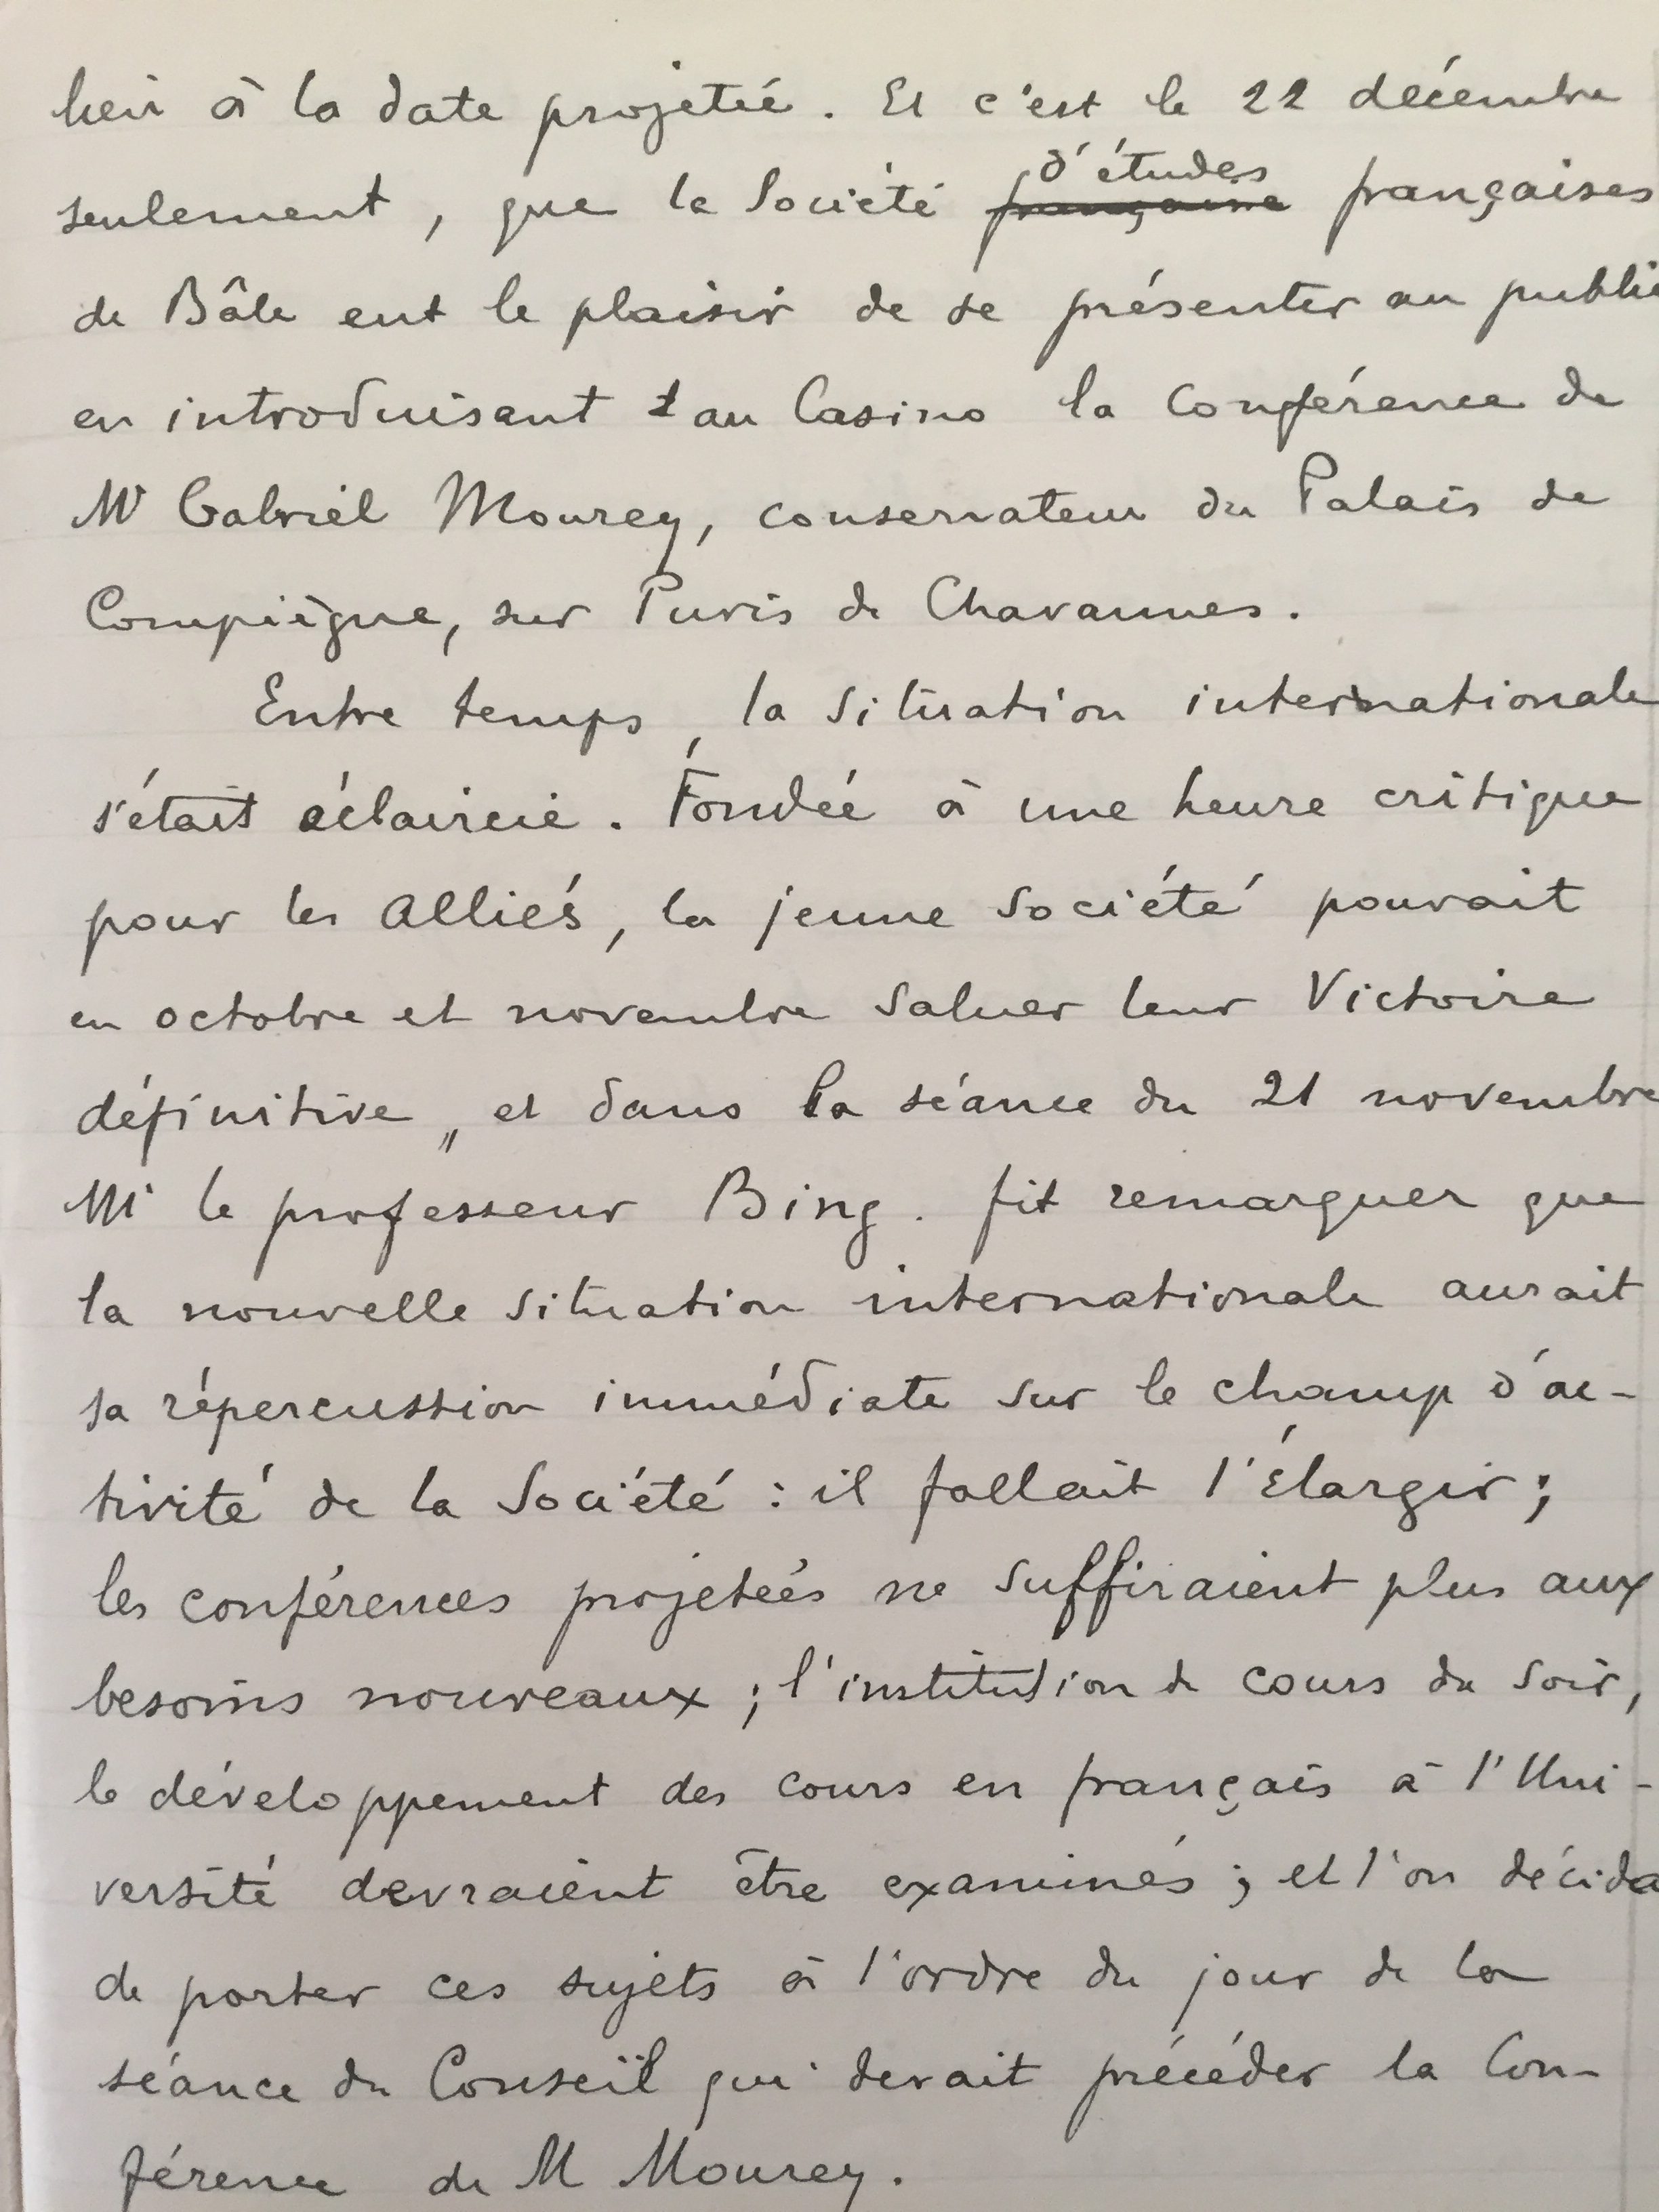 lieu à la date projetée. Et c'est le 22 décembre
seulement, que la Société française d'études françaises
de Bâle eut le plaisir de se présenter au public
en introduisant au Casino la Conférence de
Mr Gabriel Mourey, conservateur du Palais de
Compiègne, sur Puvis de Chavannes.
Entre temps, la situation internationale
s'était éclaircie. Fondée à une heure critique
pour les Alliés, la jeune Société pouvait
en octobre et novembre saluer leur Victoire
définitive, et dans la séance du 21 novembre
Mr le professeur Bing. fit remarquer que
la nouvelle situation internationale aurait
sa répercussion immédiate sur le champ d'ac-
tivité de la Société : il fallait l'Élargir;
les conférences projetées ne suffiraient plus aux
besoins nouveaux ; l'institution de cours du soir,
le développement des cours en français à l'Uni-
versité devraient être examinés ; et l'on décida
de porter ces sujets à l'ordre du jour de la
séance du Conseil qui devait précéder la Con-
férence de M Mourey.